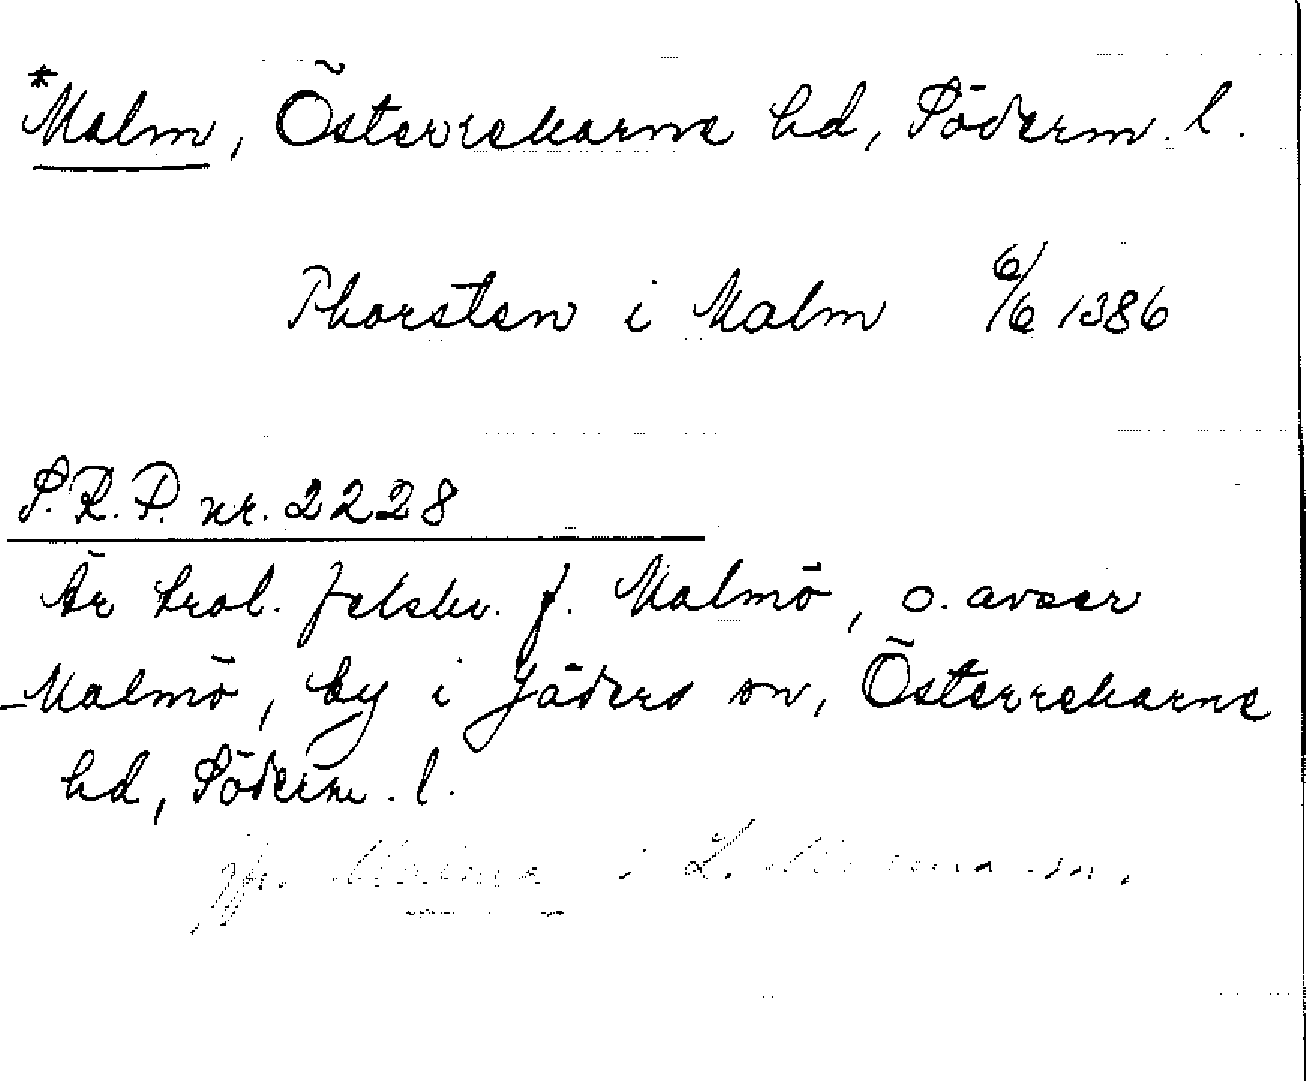 *Malm, Österrekarne hd, Söderm. l.
Thorsten i Malm 6/6 1386
S.R.P. nr. 2228
Är trol. felskr. f. Malmö, o. avser
Malmö, by i Jäders sn, Österrekarne
hd, Söderm. l.
jfr. i L.